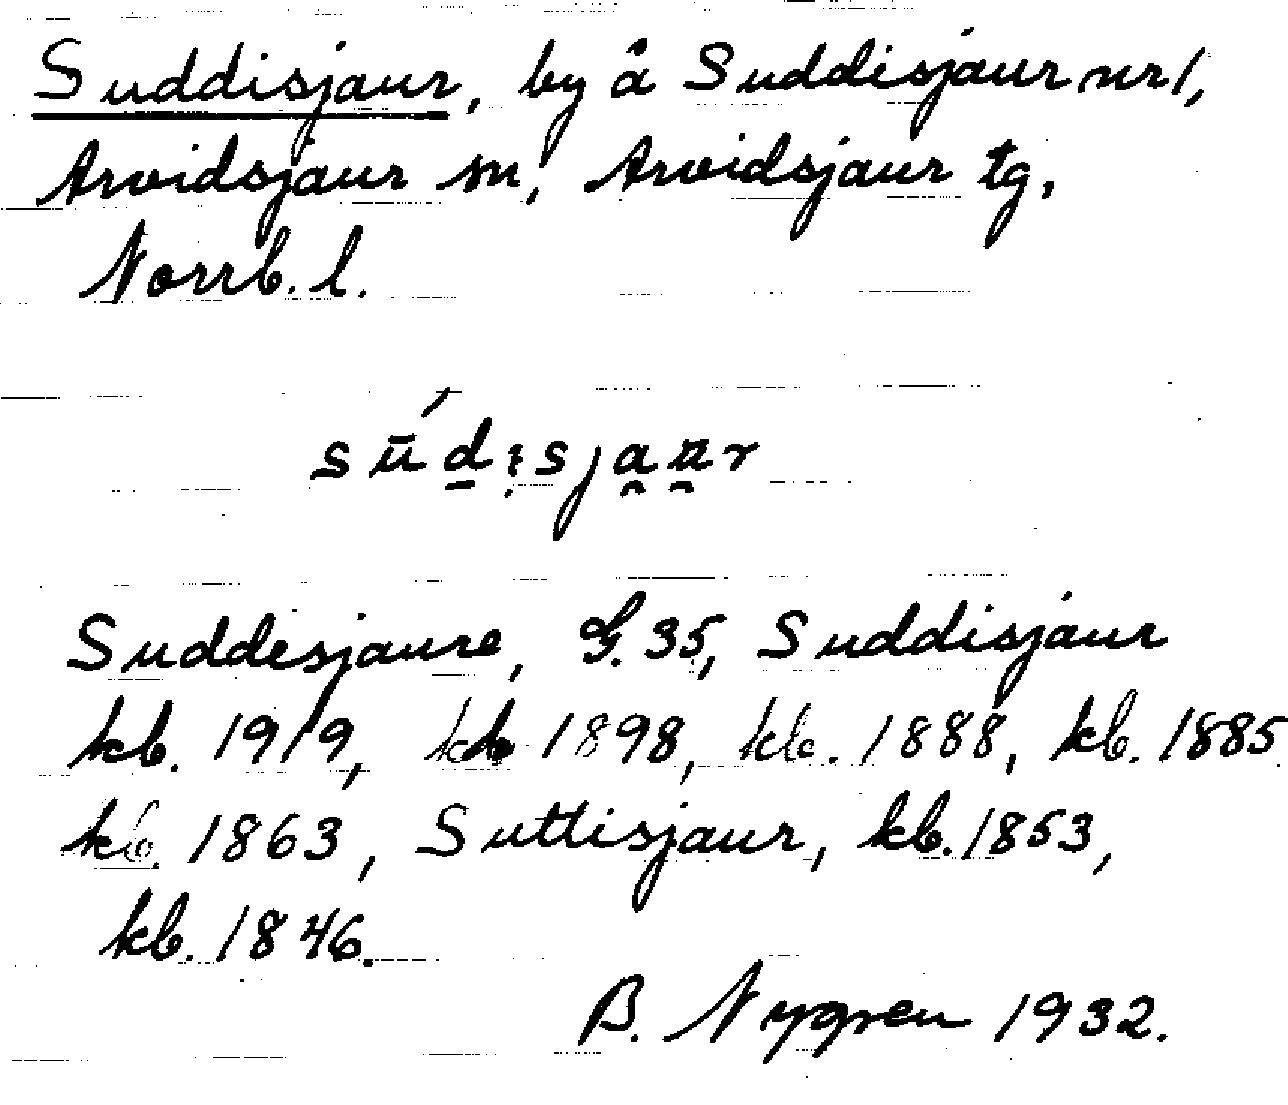 Suddisjaur, by å Suddisjaur nr 1,
Arvidsjaur sn, Arvidsjaur tg,
Norrb. l.
sū́d̠ısja̯u̯r
Suddesjaure, G. 35, Suddisjaur
kb. 1919, kb 1898, kb. 1888, kb. 1885
kb. 1863, Suttisjaur, kb. 1853,
kb. 1846.
B. Nygren 1932.